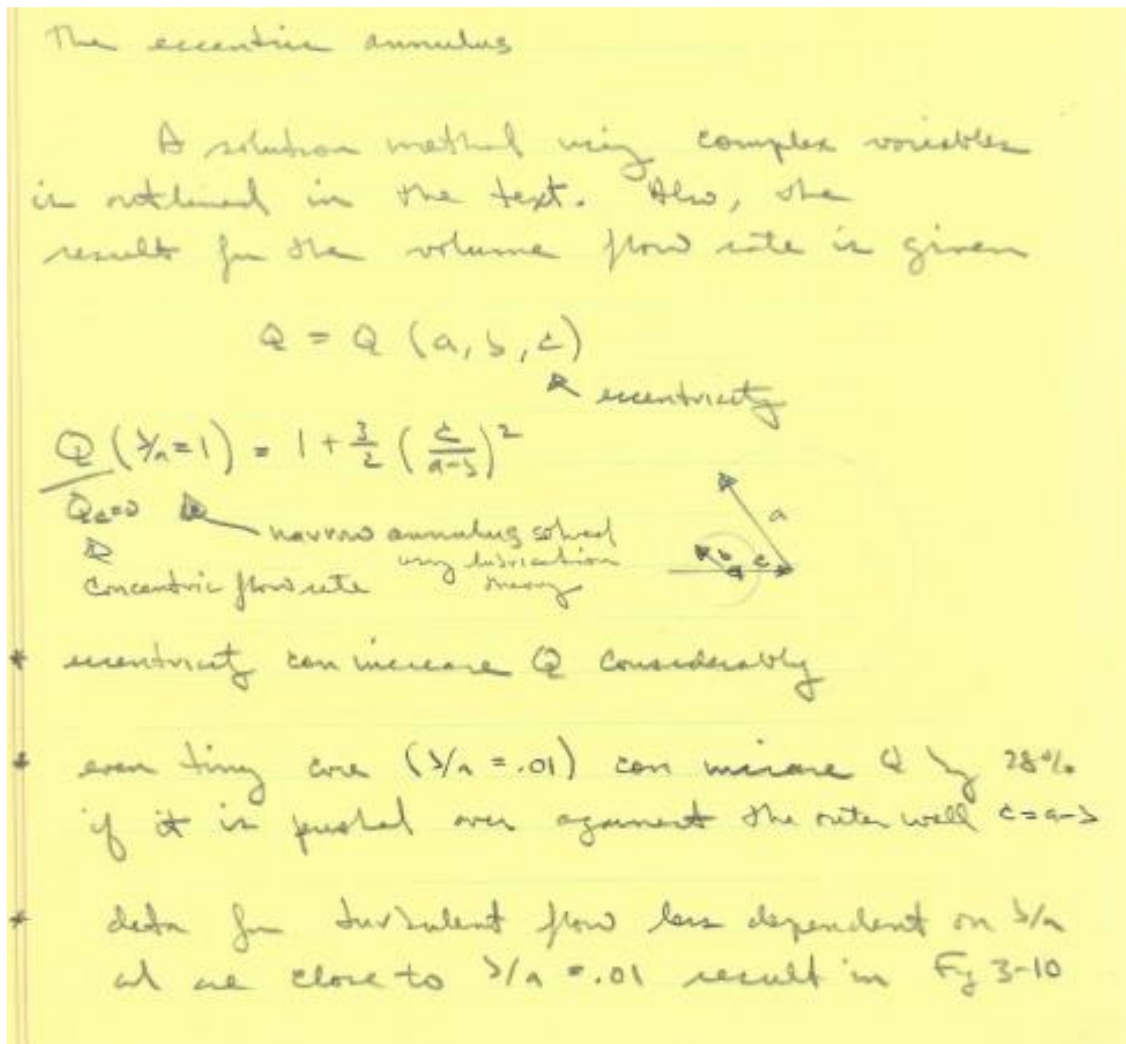 The eccentric annulus
A solution method using complex variables
is outlined in the text. Also, the
results for the volume flow rate is given
Q = Q (a, b, c)
eccentricity
Q/Q_{c=0} (b/a=1) = 1 + 3/2 (c/(a-b))^2
narrow annulus solved
using lubrication
theory
concentric flow rate
a
b
c
* eccentricity can increase Q considerably
* even tiny core (b/a = .01) can increase Q by 28%
if it is pushed over against the outer wall c=a-b
* data for turbulent flow less dependent on b/a
are close to b/a = .01 result in Fig 3-10